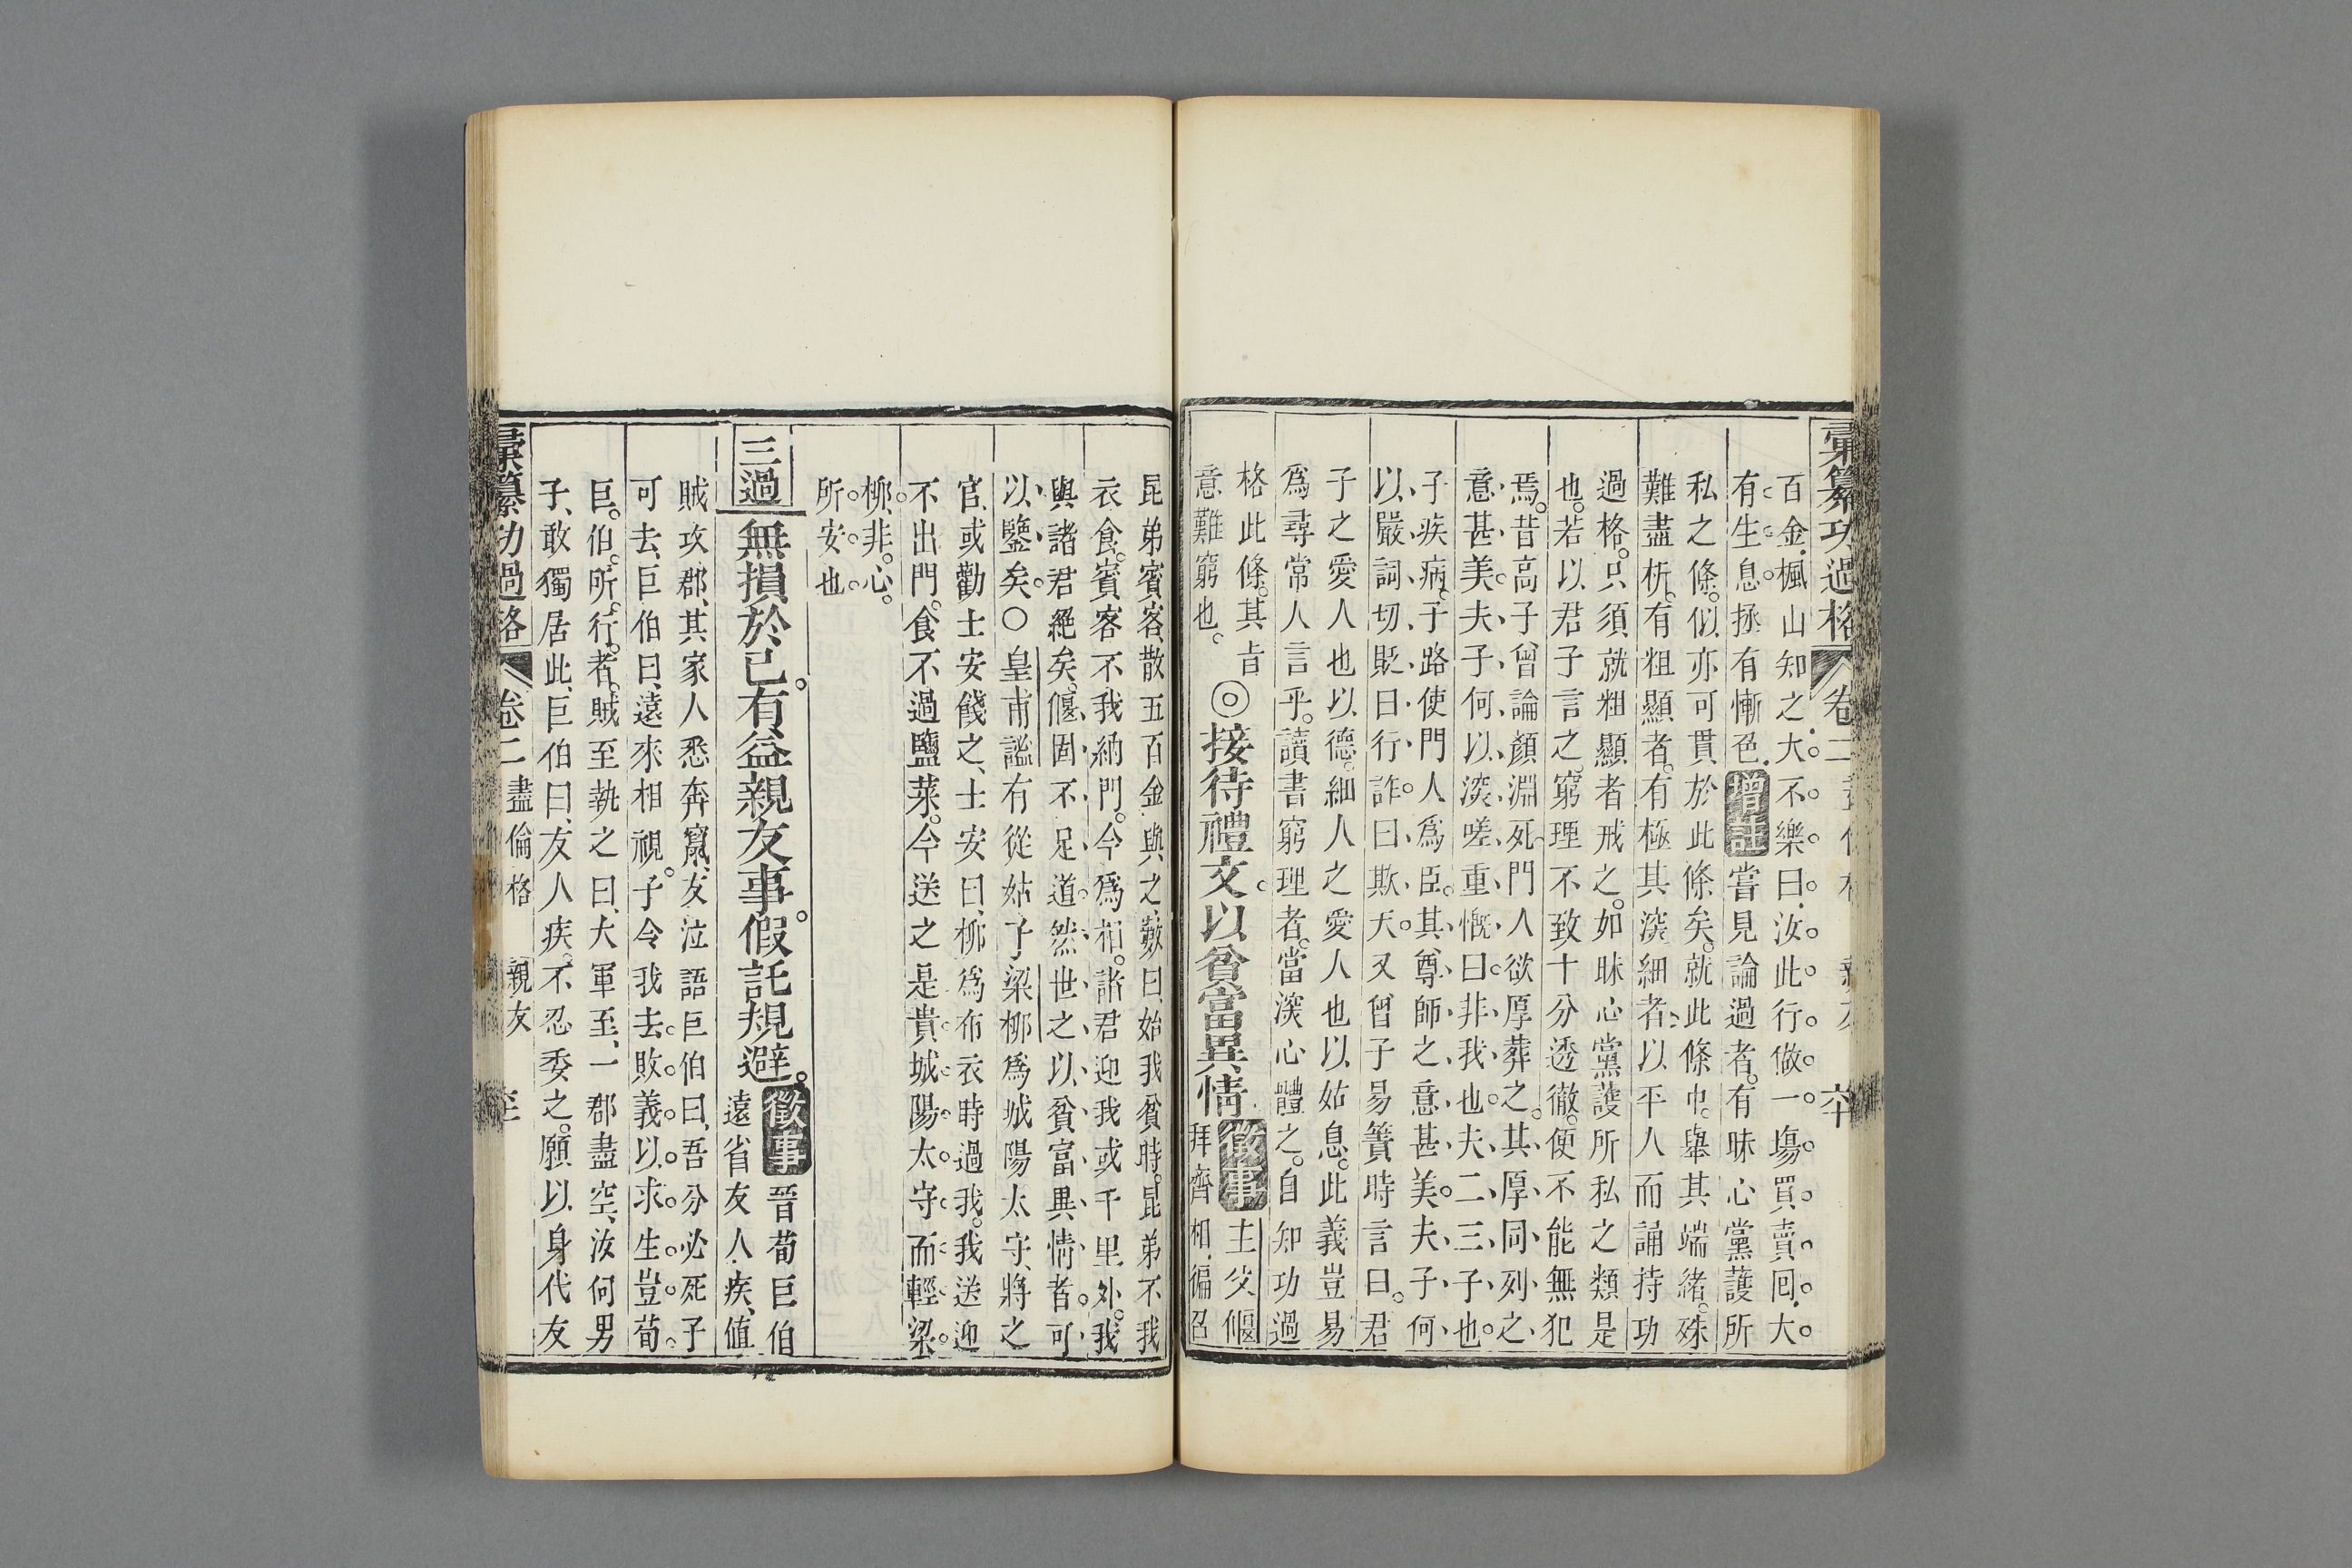 彙纂功過格 卷二
百金楓山知之大不樂曰汝此行做一塲買賣囘大
有生息拯有慚色增註嘗見論過者有昧心黨護所
私之條似亦可貫於此條矣就此條中舉其端緒殊
難盡析有粗顯者有極其深細者以平人而誦持功
過格只須就粗顯者戒之如昧心黨護所私之類是
也若以君子言之窮理不致十分透徹便不能無犯
焉昔高子曾論顏淵死門人欲厚葬之其厚同列之
意甚美夫子何以深嗟重慨曰非我也夫二三子也
子疾病子路使門人爲臣其尊師之意甚美夫子何
以嚴詞切貶曰行詐曰欺天又曾子易簀時言曰君
子之愛人也以德細人之愛人也以姑息此義豈易
爲尋常人言乎讀書窮理者當深心體之自知功過
格此條其旨
意難窮也
◎接待禮文以貧富異情
徵事主父偃
拜齊相徧召
昆弟賓客散五百金與之數曰始我貧時昆弟不我
衣食賓客不我納門今爲相諸君迎我或千里外我
與諸君絕矣偃固不足道然世之以貧富異情者可
以鑒矣○皇甫謐有從姑子梁柳爲城陽太守將之
官或勸士安餞之士安曰柳爲布衣時過我我送迎
不出門食不過鹽菜今送之是貴城陽太守而輕梁
柳非心
所安也
三過 無損於已有益親友事假託規避
徵事晉荀巨伯
遠省友人疾值
賊攻郡其家人悉奔竄友泣語巨伯曰吾分必死子
可去巨伯曰遠來相視子令我去敗義以求生豈荀
巨伯所行者賊至執之曰大軍至一郡盡空汝何男
子敢獨居此巨伯曰友人疾不忍委之願以身代友
彙纂功過格 卷二 盡倫格 親友